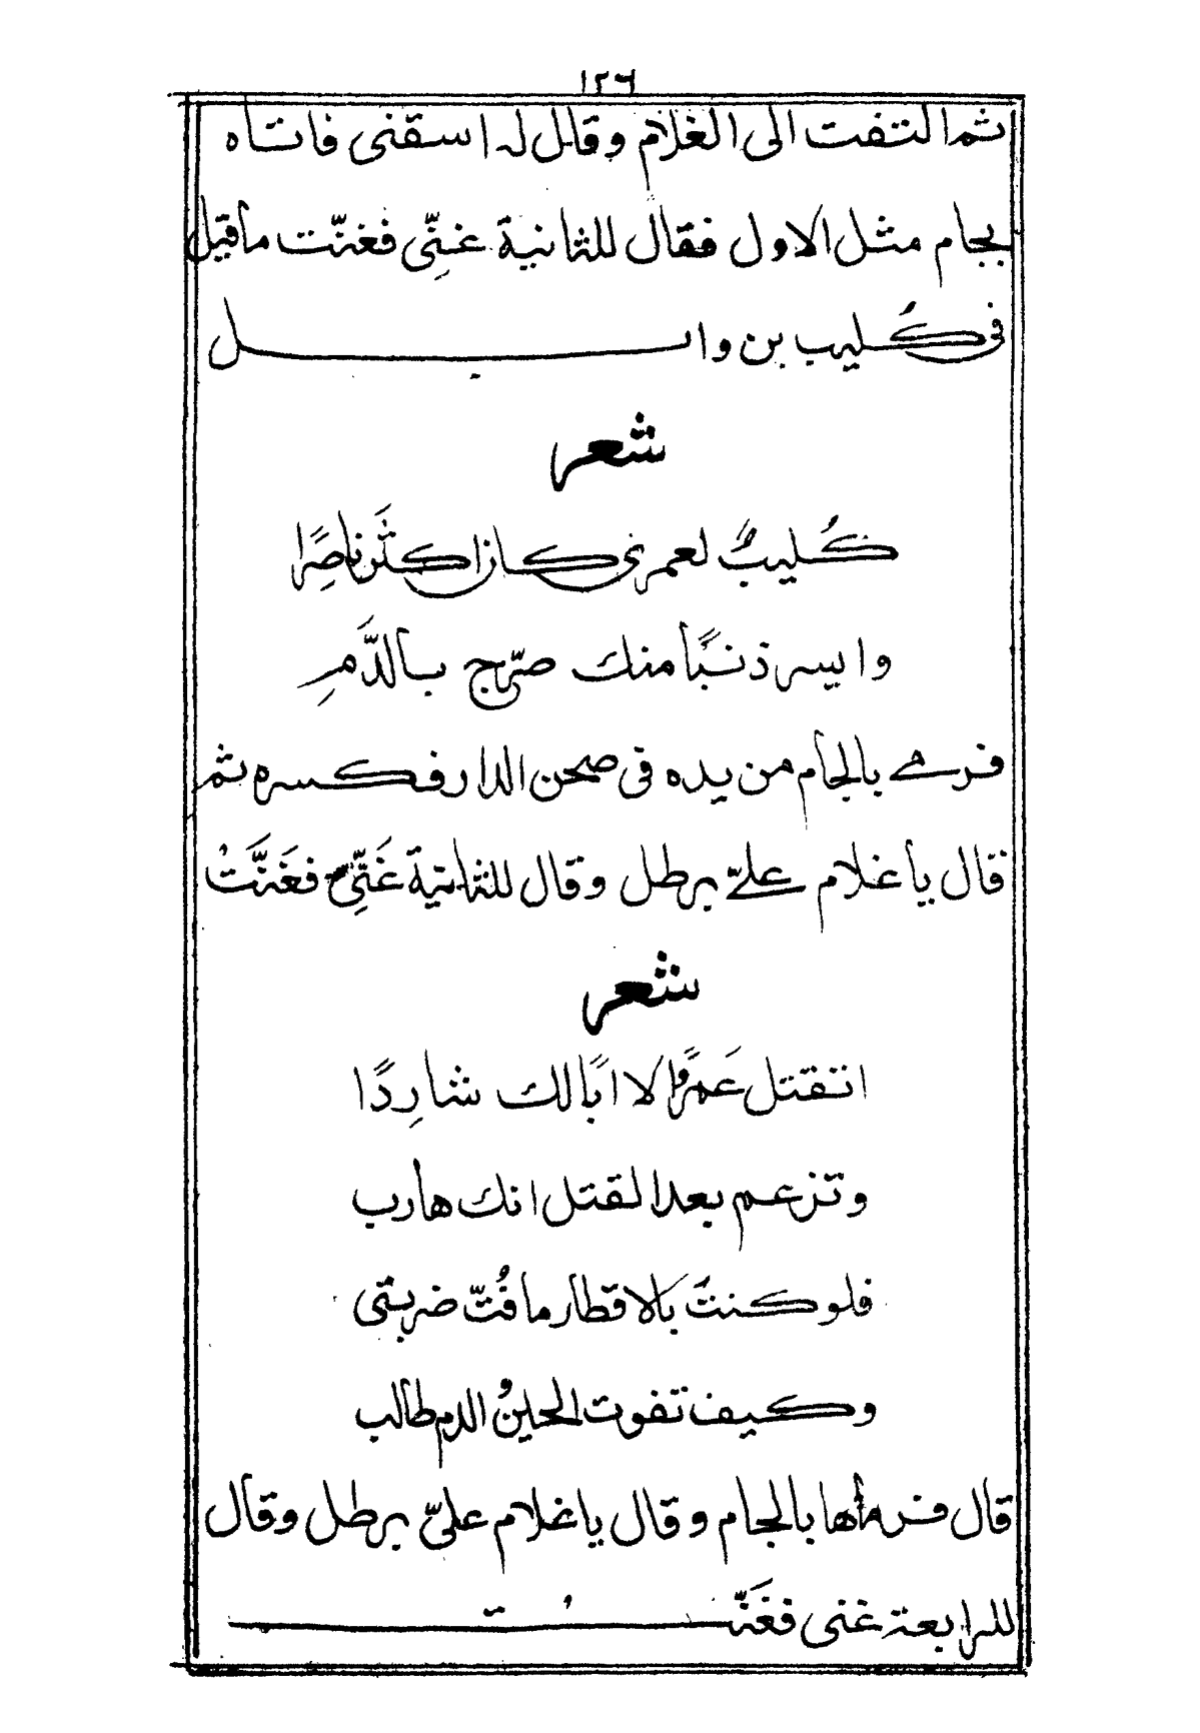 ١٢٦
ثم التفت الى الغلام وقال له اسقنى فاتاه
بجام مثل الاول فقال للثانية غنِّى فغنّت ما قيل
فى كُليب بن وايل
شعر
كُليبٌ لعمرى كان اكثَر ناصِرًا
وايسر ذنبًا منك ضرّج بالدَّمِ
فرمى بالجام من يده فى صحن الدار فكسره ثم
قال يا غلام علىّ برطل وقال للثانية غَنِّى فغَنَّتْ
شعر
اتقتل عَمرًا لا ابًا لك شارِدًا
وتزعم بعد القتل انك هارب
فلو كنتَ بالاقطار ما فُتّ ضربتى
وكيف تفوت الحينُ والدم طالب
قال فرماها بالجام وقال يا غلام علىّ برطل وقال
للرابعة غنى فغَنّتُ